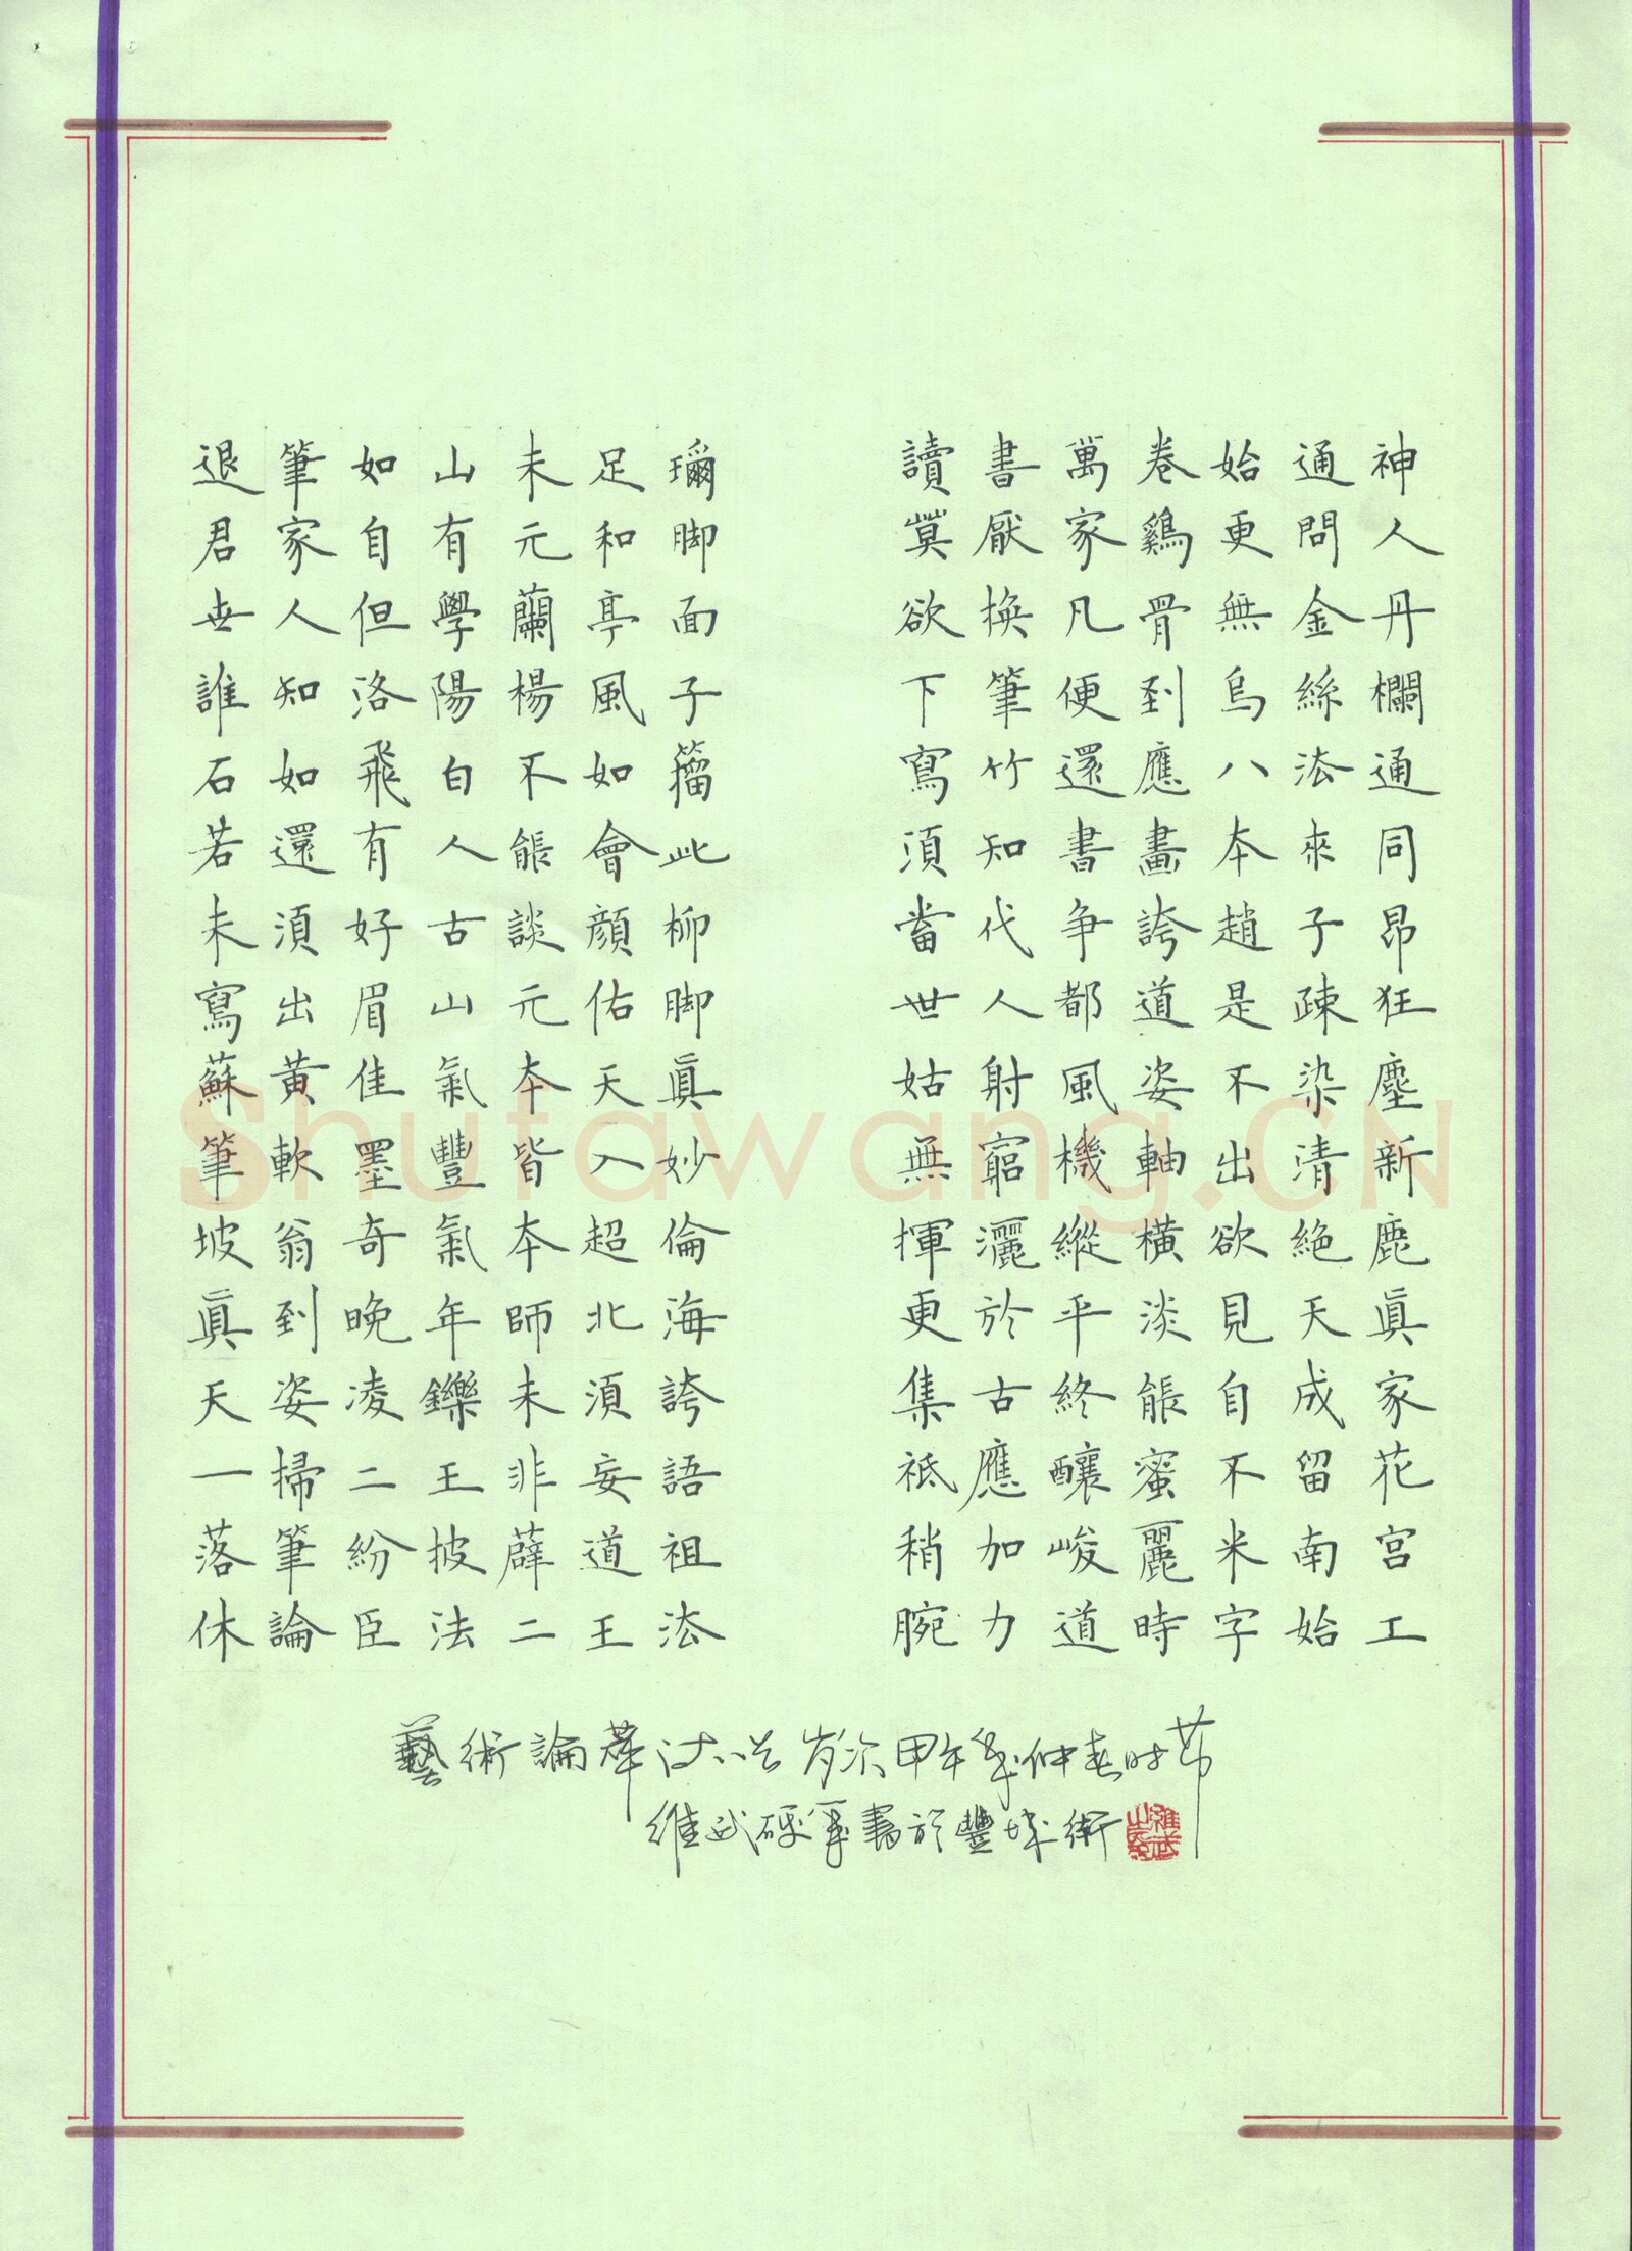 神人丹欄通同昂狂塵新鹿真家花宮工
通問金絲法來子疎染清絕天成留南始
始更無烏八本趙是不出欲見自不米字
卷鷄骨到應畫誇道姿軸橫淡能蜜麗時
萬家凡便還書爭都風機縱平終釀峻道
書厭換筆竹知代人射窮灑於古應加力
讀莫欲下寫須當世姑無揮更集祗稍腕
脚面子籀此柳脚真妙倫海誇語祖法
足和亭風如會顏佑天入超北須妄道王
未元蘭楊不能談元本皆本師未非薜二
山有學陽白人古山氣豐氣年鑠王披法
如自但洛飛有好眉佳墨奇晚凌二紛臣
筆家人知如還須出黃軟翁到姿掃筆論
退君世誰石若未寫蘇筆坡真天一落休
藝術論 岁次甲午年仲春时节
維武硬筆書於豐城
Shufawang.CN